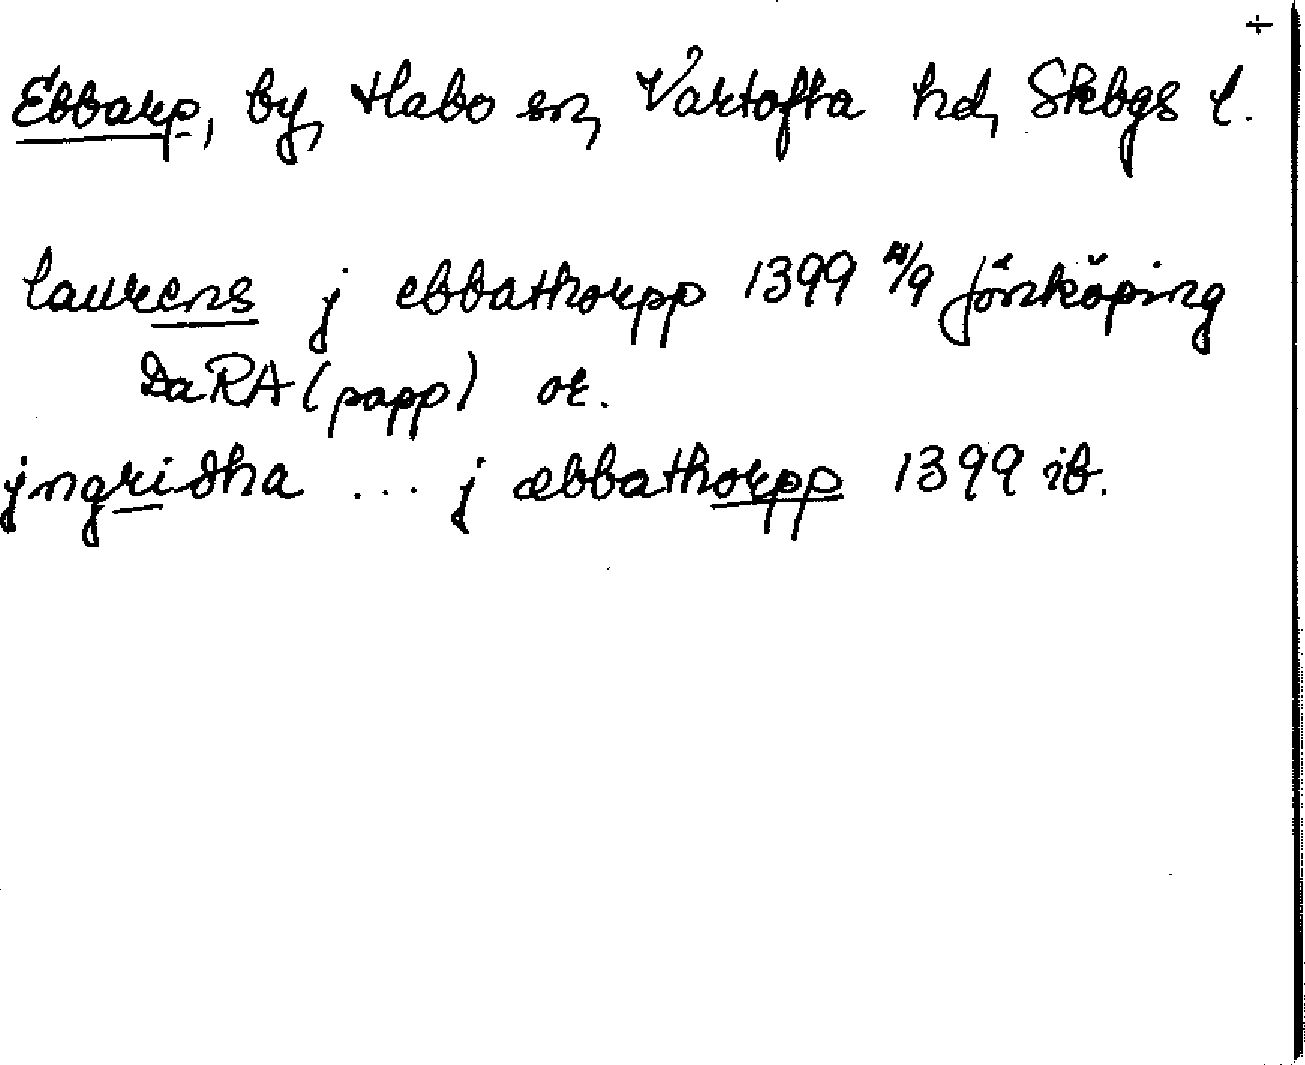 +
Ebbarp, by, Habo sn, Vartofta hd, Skbgs l.
laurens j ebbathorpp 1399 /9 Jönköping
DaRA (papp) or.
jngridha ... j æbbathorpp 1399 ib.